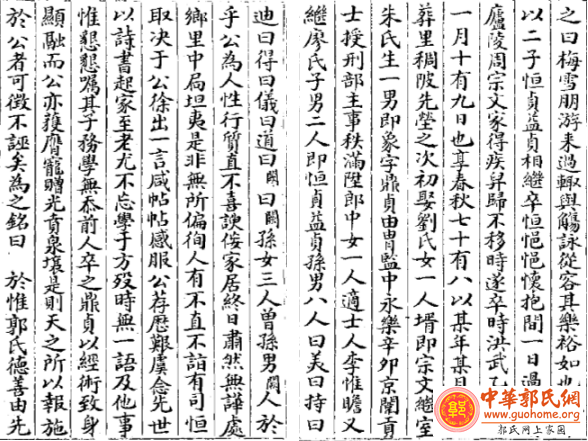 之曰梅雪朋游来過輙與觴詠從容其樂裕如也
以二子恒貞藍貞相繼卒恒悒悒懷抱間一日過
廬陵周宗文家得疾舁歸不移時遂卒時洪武乙
一月十有九日也享春秋七十有八以某年某月
葬里稠陂先塋之次初娶劉氏女一人壻即宗文繼室
朱氏生一男即象字鼎貞由胄監中永樂辛卯京闈貢
士授刑部主事秩滿陞郎中女一人適士人李惟瞻又
繼廖氏子男二人即恒貞藍貞孫男八人曰美曰持曰
迪曰得曰儀曰道曰闕曰闕孫女三人曾孫男闕人於
乎公為人性行質直不喜諛佞家居終日肅然無譁處
鄉里中局坦夷是非無所偏徇人有不直不詣有司恒
取決于公徐出一言咸帖帖感服公荐歷艱虞念先世
以詩書起家至老尤不忘學子方歿時無一語及他事
惟懇懇囑其子務學無忝前人卒之鼎貞以經術致身
顯融而公亦獲膺寵贈光賁泉壤是則天之所以報施
於公者可徵不誣矣為之銘曰 於惟郭氏德善由先
中華郭氏網
www.guohome.org
郭氏网上家園